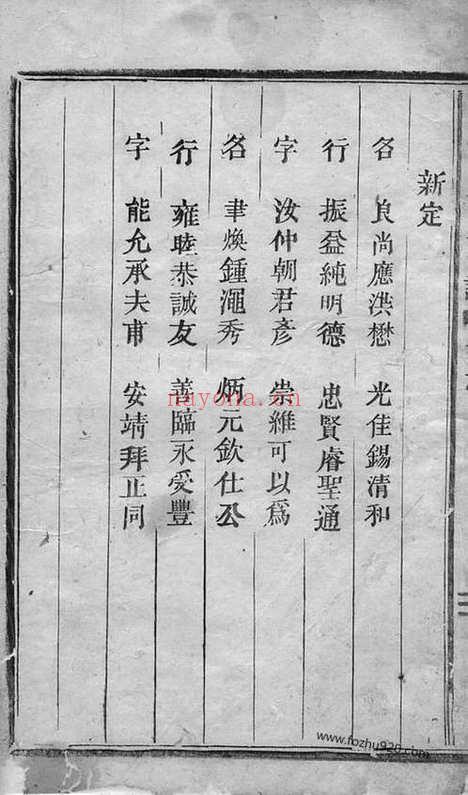 新定
名 良尚應洪懋 光佳錫清和
行 振益純明德 忠賢睿聖通
字 汝仲朝君彥 崇維可以為
名 聿煥鍾淹秀 炳元欽仕公
行 雍睦恭誠友 善臨永受豐
字 能允承夫甫 安靖拜正同
nayona.cn
www.fozhu920.com